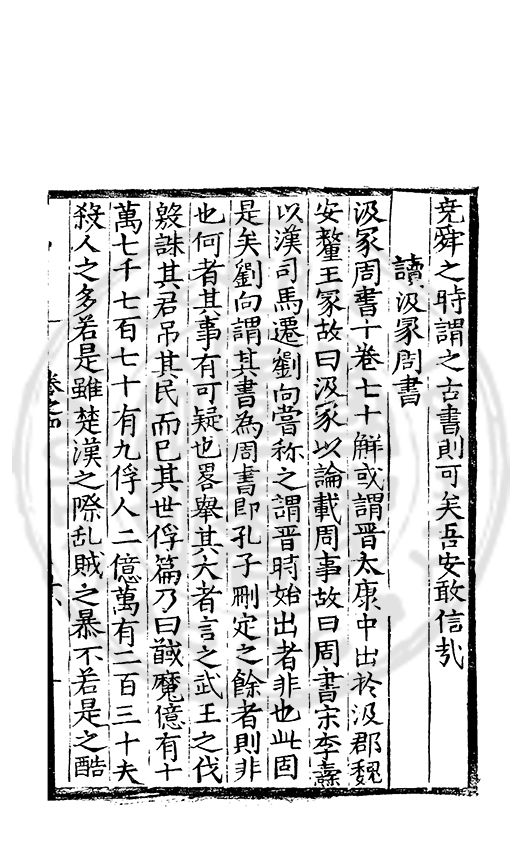 堯舜之時謂之古書則可矣吾安敢信㢤
讀汲冢周書
汲冢周書十卷七十觧或謂晋太康中出於汲郡魏
安釐王冢故曰汲冢以論載周事故曰周書宋李燾
以漢司馬遷劉向嘗称之謂晋時始出者非也此固
是矣劉向謂其書為周書即孔子刪定之餘者則非
也何者其事有可疑也畧舉其大者言之武王之伐
殷誅其君吊其民而已其世俘篇乃曰馘魔億有十
萬七千七百七十有九俘人二億萬有二百三十夫
殺人之多若是雖楚漢之際乱賊之暴不若是之酷
卷之四